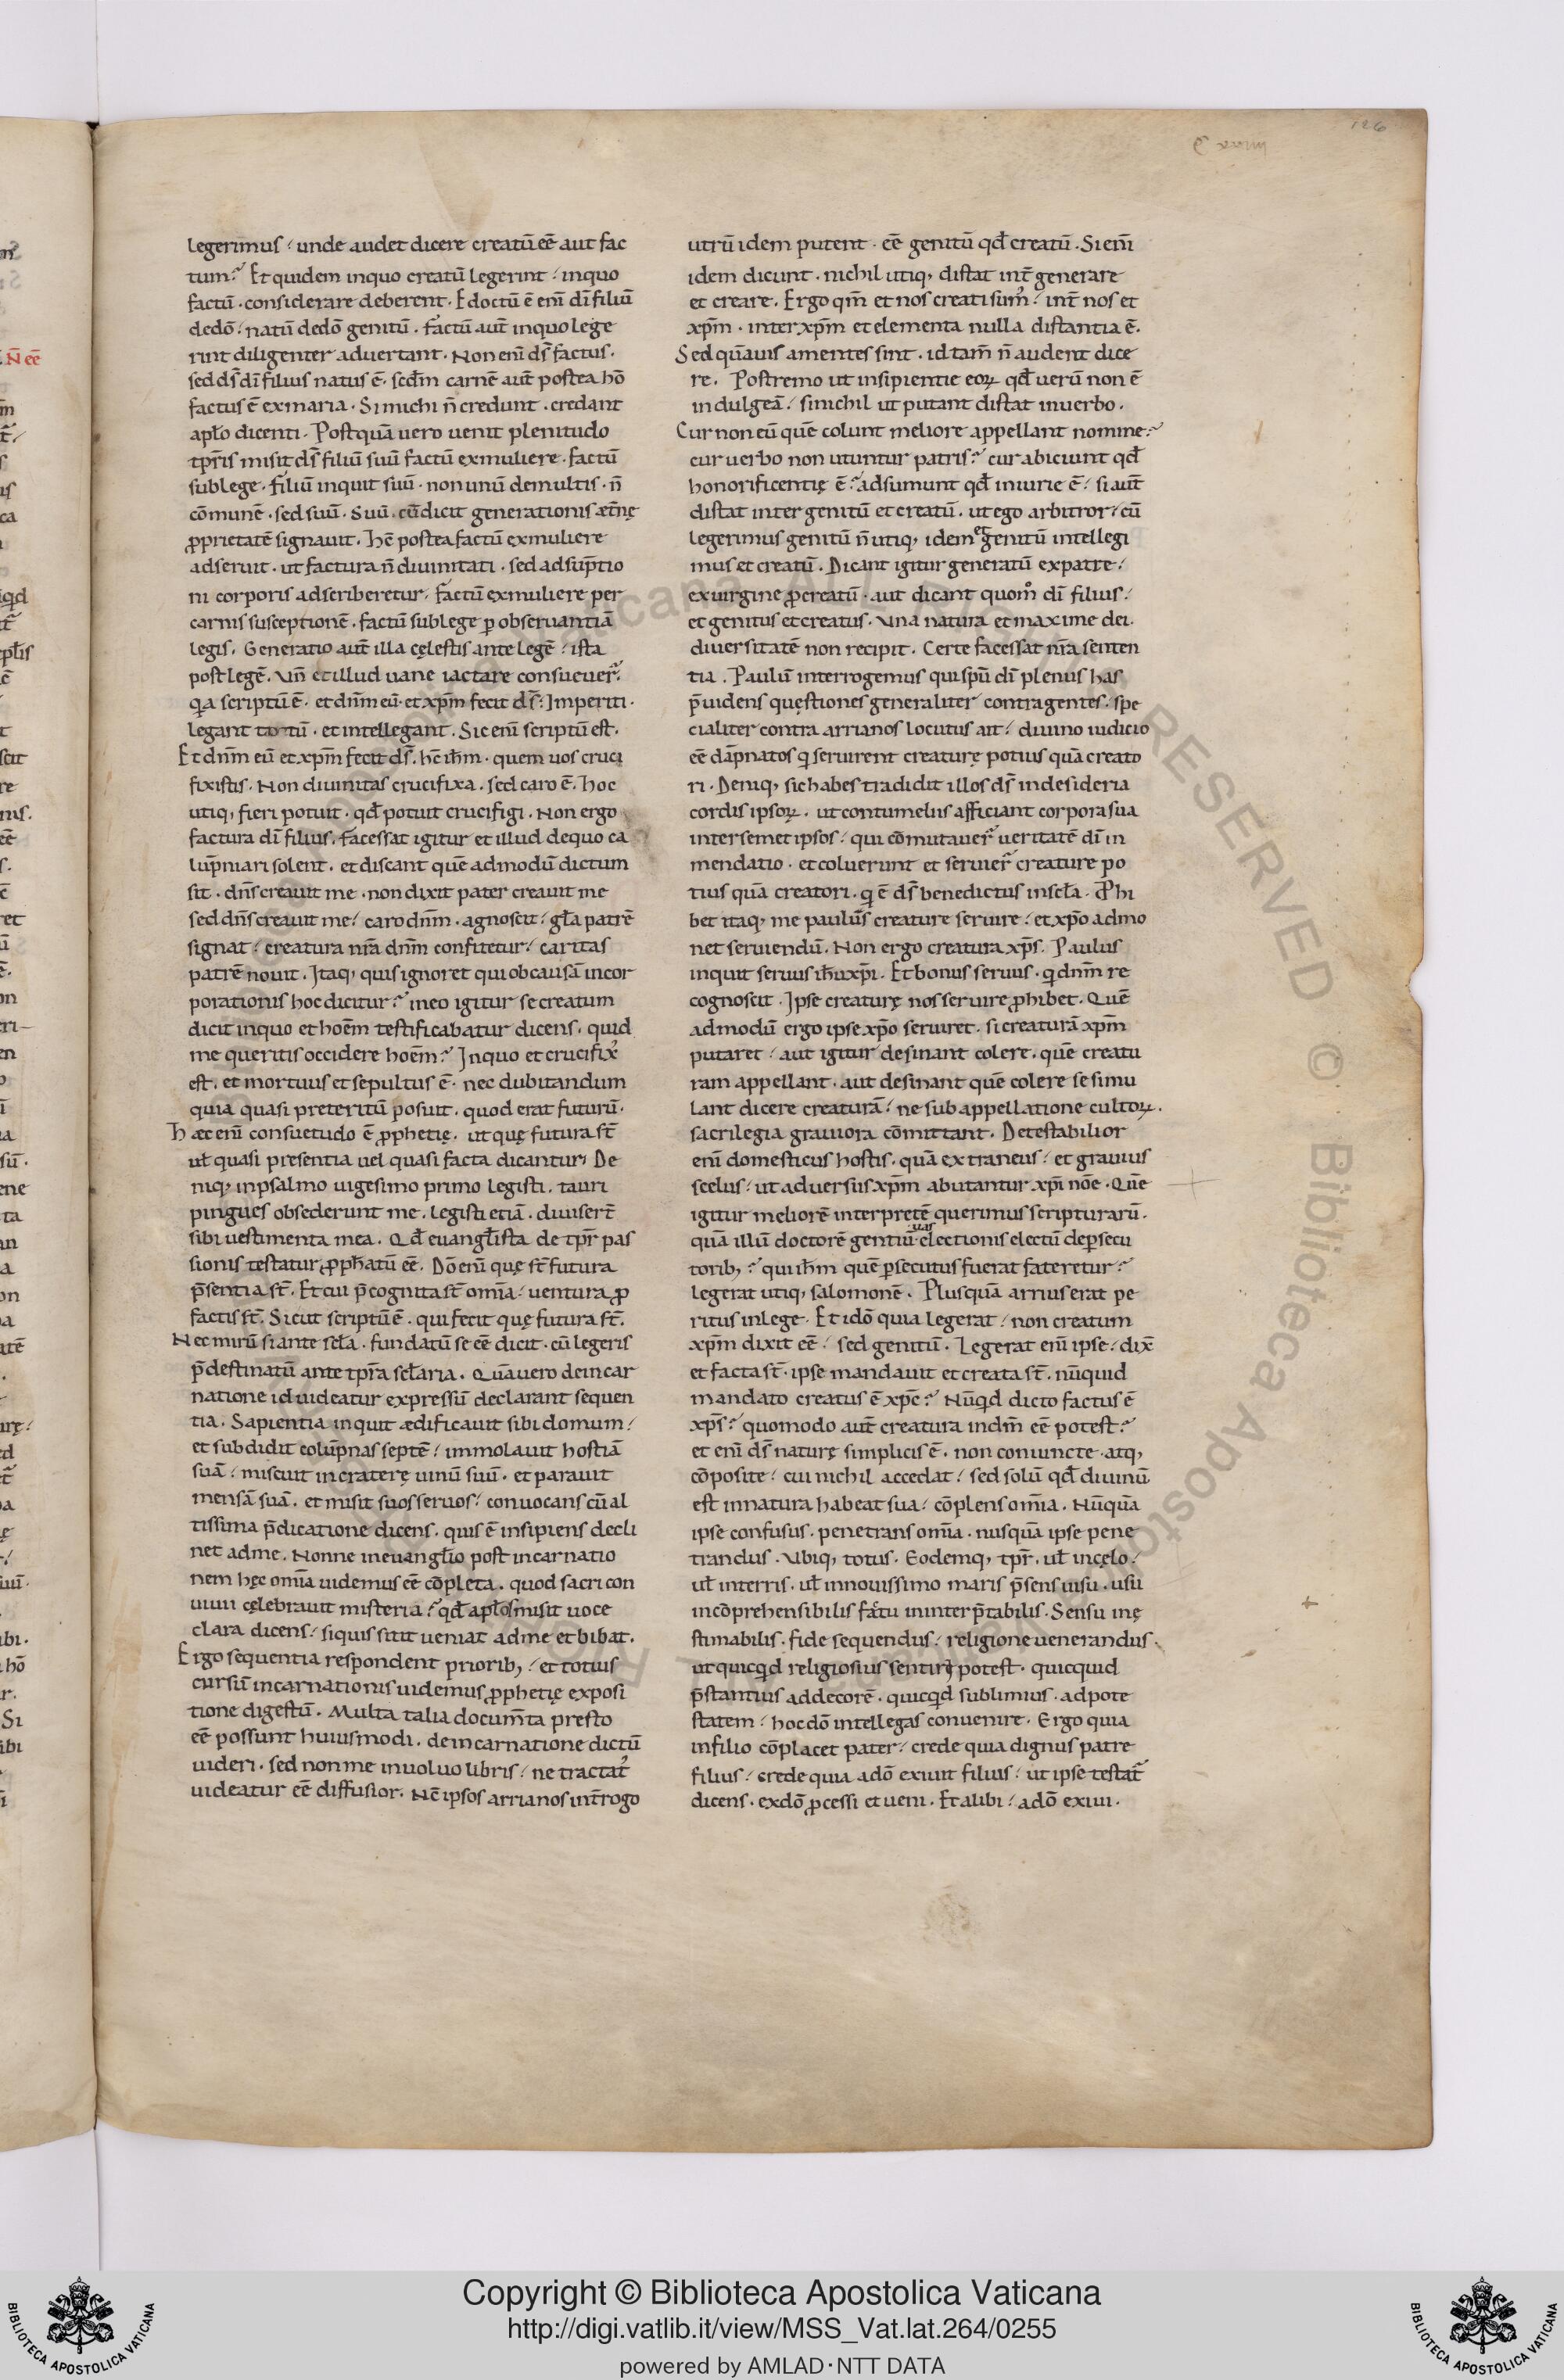 126
legerimus / unde audet dicere creatū eē aut fac
tum? Et quidem in quo creatū legerint / in quo
factū · considerare deberent · Edoctū ē eni᷑ dī filiū
de dō / natū de dō genitū · factū aut̄ in quo lege
rint diligenter aduertant · Non eni᷑ ds̄ factus ·
sed ds̄ dī filius natus ē · scd̄m carnē aut̄ postea hō
factus ē ex maria · Si michi n̄ credunt · credant
aplo dicenti · Postquā uero uenit plenitudo
tp̄ris misit ds̄ filiū suū factū ex muliere · factū
sub lege · filiū inquit suū · non unū de multis · n̄
cōmunē · sed suū · Suū cū dicit generationis æt̄nę
ꝓprietatē signauit · Hc̄ postea factū ex muliere
adseruit · ut factura n̄ diuinitati · sed adsūptio
ni corporis adscriberetur · factū ex muliere per
carnis susceptionē · factū sub lege ꝑ obseruantiā
legis · Generatio aut̄ illa cęlestis ante legē / ista
post legē · Vn̄ et illud uane iactare consueuer̄ ·
qa scriptū ē · et dn̄m eū · et xp̄m fecit ds̄ : Imperiti ·
legant totū · et intellegant · Sic eni᷑ scriptū est ·
Et dn̄m eū et xp̄m fecit ds̄ · hc̄ ih̄m · quem uos cruci
fixistis · Non diuinitas crucifixa · sed caro ē · hoc
utiq, fieri potuit · qd̄ potuit crucifigi · Non ergo
factura dī filius · facessat igitur et illud de quo ca
lūpniari solent · et discant quē admodū dictum
sit · dn̄s creauit me · non dixit pater creauit me
sed dn̄s creauit me / caro dn̄m · agnoscit / gl̄a patrē
signat / creatura nr̄a dn̄m confitetur / caritas
patrē nouit · Itaq, quis ignoret qui ob causā incor
porationis hoc dicitur? in eo igitur se creatum
dicit in quo et hoēm testificabatur dicens · quid
me queritis occidere hoēm? In quo et crucifix᷒
est · et mortuus et sepultus ē · nec dubitandum
quia quasi preteritū posuit · quod erat futurū ·
Hæc eni᷑ consuetudo ē ꝓphetię · ut quę futura st̄
ul̄ quasi presentia uel quasi facta dicantur · De
niq, in psalmo uigesimo primo legisti · tauri
pingues obsederunt me · legisti etiā · diuisert̄
sibi uestimenta mea · Qd̄ euangl̄ista de tp̄r pas
sionis testatur ꝓph̄atū eē · Dō eni᷑ quę st̄ futura
p̄sentia st̄ · Et cui p̄cognita st̄ om̄ia / uentura ꝓ
factis st̄ · Sicut scriptū ē · qui fecit quę futura st̄ ·
Nec mirū si ante scl̄a · fundatū se eē dicit · cū legeris
p̄destinatū ante tp̄ra scl̄aria · Quā uero de incar
natione id uideatur expressū declarant sequen
tia · Sapientia inquit ædificauit sibi domum /
et subdidit colūpnas septē / immolauit hostiā
suā / miscuit in craterę uinū suū · et parauit
mensā suā · et misit suos seruos / conuocans cū al
tissima p̄dicatione dicens · quis ē insipiens decli
net ad me · Nonne in euangl̄io post incarnatio
nem hęc om̄ia uidemus eē cōpleta · quod sacri con
uiuii cęlebrauit misteria? qd̄ aplos misit uoce
clara dicens / siquis sitit ueniat ad me et bibat ·
Ergo sequentia respondent priorib, / et totius
cursū incarnationis uidemus ꝓphetię exposi
tione digestū · Multa talia docum̄ta presto
eē possunt huiusmodi · de incarnatione dictū
uideri · sed non me inuoluo libris / ne tractat᷒
uideatur eē diffusior · Nc̄ ipsos arrianos int̄rogo
utrū idem putent · eē genitū qd̄ creatū · Si eni᷑
idem dicunt · nichil utiq, distat int̄ generare
et creare · Ergo qm̄ et nos creati sum᷒ / int̄ nos et
xp̄m · inter xp̄m et elementa nulla distantia ē ·
Sed quāuis amentes sint · id tam̄ n̄ audent dice
re · Postremo ut insipientie eoꝝ qd̄ uerū non ē
indulgeā / si nichil ut putant distat in uerbo ·
Cur non eū quē colunt meliore appellant nomine?
cur uerbo non utuntur patris? cur abiciunt qd̄
honorificentię ē? adsumunt qd̄ iniurie ē / si aut̄
distat inter genitū et creatū · ut ego arbitror / cū
legerimus genitū n̄ utiq, idem et genitū intellegi
mus et creatū · Dicant igitur generatū ex patre /
ex uirgine ꝓcreatū · aut dicant quom̊ dī filius /
et genitus et creatus · Vna natura et maxime dei ·
diuersitatē non recipit · Certe facessat nr̄a senten
tia · Paulū interrogemus qui sp̄u dī plenus has
p̄uidens quęstiones generaliter contra gentes · spe
cialiter contra arrianos locutus ait / diuino iudicio
eē dāpnatos q seruirent creaturę potius quā creato
ri · Deniq, sic habes tradidit illos ds̄ in desideria
cordis ipsoꝝ · ut contumeliis afficiant corpora sua
inter semet ipsos / qui cōmutauer̄ ueritatē dī in
mendatio · et coluerunt et seruier̄ creature po
tius quā creatori · q ē ds̄ benedictus in scl̄a · Ꝓhi
bet itaq, me paulus creature seruire / et xp̄o admo
net seruiendū · Non ergo creatura xp̄s · Paulus
inquit seruus ih̄u xp̄i · Et bonus seruus · q dn̄m re
cognoscit · Ipse creaturę nos seruire ꝓhibet · Quē
admodū ergo ipse xp̄o seruiret · si creaturā xp̄m
putaret / aut igitur desinant colere · quē creatu
ram appellant · aut desinant quē colere se simu
lant dicere creaturā / ne sub appellatione cultoꝝ ·
sacrilegia grauiora cōmittant · Detestabilior
eni᷑ domesticus hostis · quā extraneus / et grauius
scelus / ut aduersus xp̄m abutantur xp̄i nōe · Quē
igitur meliorē interpretē querimus scripturarū ·
quā illū doctorē gentiū · uas electionis electū de ꝑsecu
torib, ? qui ih̄m quē ꝑsecutus fuerat fateretur?
legerat utiq, salomonē · Plus quā arrius erat pe
ritus in lege · Et idō quia legerat / non creatum
xp̄m dixit eē / sed genitū · Legerat eni᷑ ipse / dix̄
et facta st̄ · ipse mandauit et creata st̄ · nūquid
mandato creatus ē xp̄c? Nūqd dicto factus ē
xp̄s? quomodo aut̄ creatura in dm̄ eē potest?
et eni᷑ ds̄ naturę simplicis ē · non coniuncte atq,
cōposite / cui nichil accedat / sed solū qd̄ diuinū
est in natura habeat sua / cōplens om̄ia · Nūquā
ipse confusus · penetrans om̄ia · nusquā ipse pene
trandus · Vbiq, totus · Eodemq, tp̄r · ul̄ in cęlo /
ul̄ in terris · ul̄ in nouissimo maris p̄sens uisu · usu
incōprehensibilis fatu ininterp̄tabilis · Sensu inę
stimabilis · fide sequendus / religione uenerandus ·
ut quicqd religiosius sentiri potest · quicquid
p̄stantius ad decorē · quicqd sublimius · ad pote
statem / hoc dō intellegas conuenire · Ergo quia
in filio cōplacet pater / crede quia dignus patre
filius / crede quia a dō exiuit filius / ut ipse testat᷑
dicens · ex dō ꝓcessi et ueni · Et alibi / a dō exiui ·
Copyright © Biblioteca Apostolica Vaticana
http://digi.vatlib.it/view/MSS_Vat.lat.264/0255
powered by AMLAD·NTT DATA